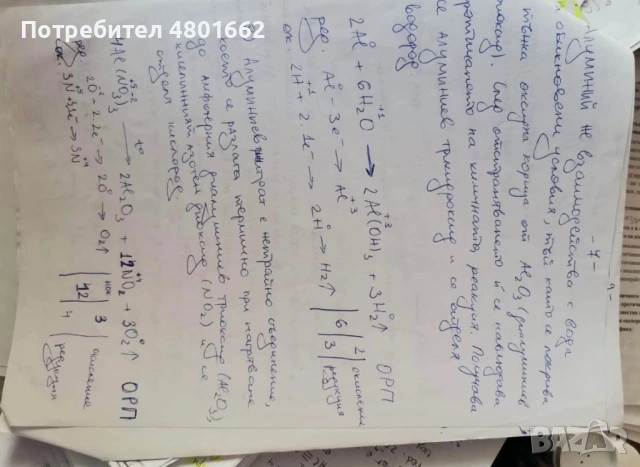 Потребител 4801662
- 7 -
Алуминий не взаимодейства с вода
обикновени условия, тъй като се покрива
тънка оксидна корица от Al₂O₃ (диалуминиев
). След отстраняването ѝ се наблюдава
протичането на химичната реакция. Получава
се алуминиев трихидроксид и се отделя
водород.
2Al⁰ + 6H₂⁺¹O → 2Al⁺³(OH)₃ + 3H₂⁰↑ ОРП
ред. Al⁰ - 3e⁻ → Al⁺³ | 2 | окисление
ок. 2H⁺¹ + 2.1e⁻ → 2H⁰ → H₂↑ | 6 | 3 | редукция
Алуминиев нитрат е нетрайно съединение,
се разлага термично при нагряване
до амфотерния диалуминиев триоксид (Al₂O₃),
азотен диоксид (NO₂) и се
отделя кислород.
4Al(N⁺⁵O₃⁻²)₃ →t° 2Al₂O₃ + 12N⁺⁴O₂ + 3O₂⁰↑ ОРП
ред. 2O⁻² - 2.2e⁻ → 2O⁰ → O₂↑ | нок | 3 | окисление
ок. 3N⁺⁵ + 3.1e⁻ → 3N⁺⁴ | 12 | 4 | редукция
BAZAR